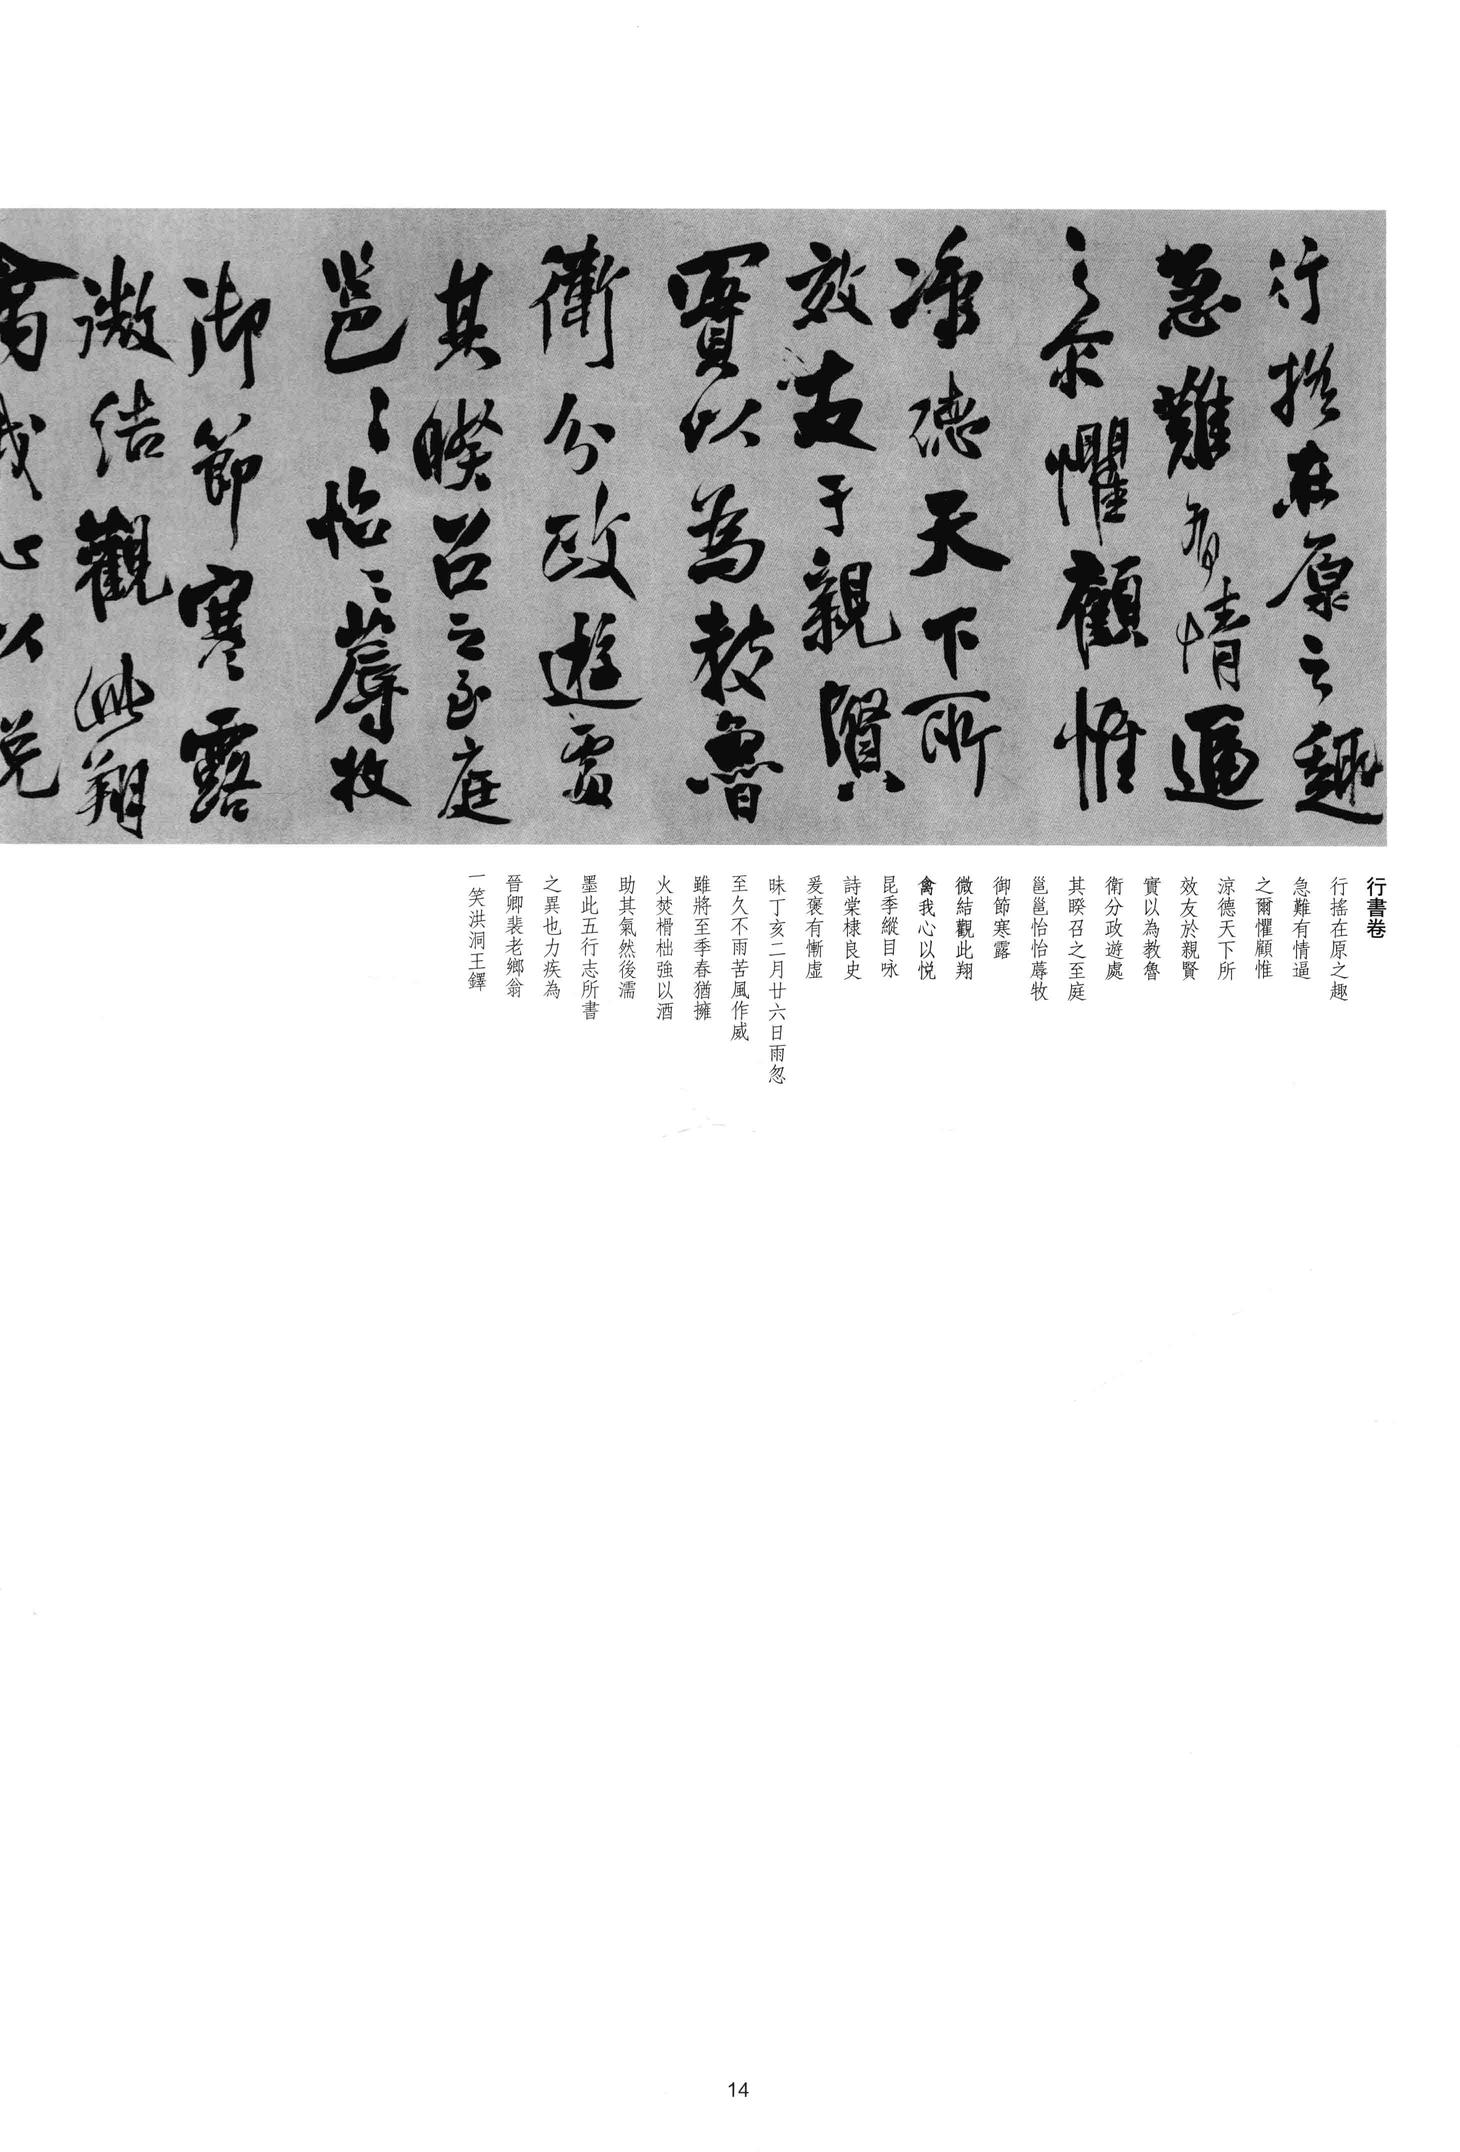 行搖在原之趣
急難有情逼
之尒懼顧惟
凉德天下所
效友于親賢
實以為教魯
衛分政遊處
其暌召之至庭
邕〻怡〻蓐牧
御節寒露
微結觀此翔
禽我心以悅
行書卷
行搖在原之趣
急難有情逼
之爾懼顧惟
涼德天下所
效友於親賢
實以為教魯
衛分政遊處
其暌召之至庭
邕邕怡怡蓐牧
御節寒露
微結觀此翔
禽我心以悦
昆季縱目咏
詩棠棣良史
爰褒有慚虛
昧丁亥二月廿六日雨忽
至久不雨苦風作威
雖將至季春猶擁
火焚榾柮強以酒
助其氣然後濡
墨此五行志所書
之異也力疾為
晉卿裴老鄉翁
一笑洪洞王鐸
14